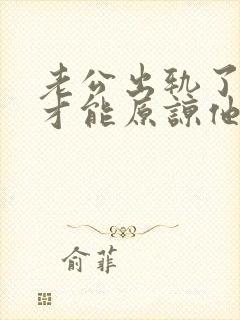 老公出轨了
才能原谅他
俞菲